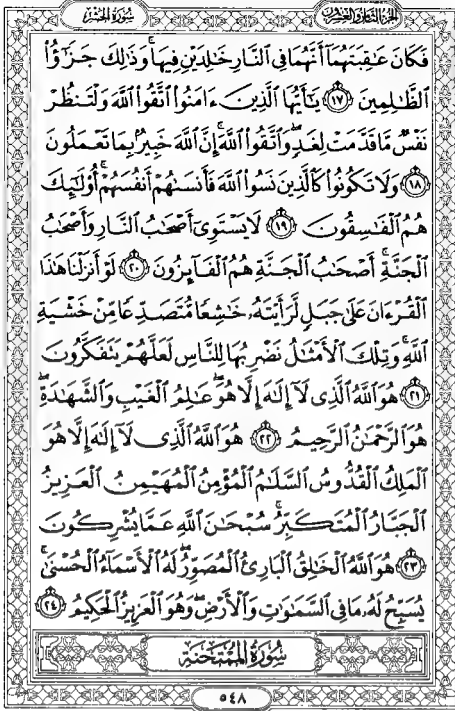 سُورَةُ الحَشْرِ
الجزء الثامن والعشرون
فَكَانَ عَاقِبَتَهُمَا أَنَّهُمَا فِي النَّارِ خَالِدَيْنِ فِيهَا وَذَٰلِكَ جَزَٰٓؤُا۟
ٱلظَّـٰلِمِينَ ١٧ يَـٰٓأَيُّهَا ٱلَّذِينَ ءَامَنُوا۟ ٱتَّقُوا۟ ٱللَّهَ وَلْتَنظُرْ
نَفْسٌ مَّا قَدَّمَتْ لِغَدٍ وَٱتَّقُوا۟ ٱللَّهَ إِنَّ ٱللَّهَ خَبِيرٌۢ بِمَا تَعْمَلُونَ
١٨ وَلَا تَكُونُوا۟ كَٱلَّذِينَ نَسُوا۟ ٱللَّهَ فَأَنسَىٰهُمْ أَنفُسَهُمْ أُو۟لَـٰٓئِكَ
هُمُ ٱلْفَـٰسِقُونَ ١٩ لَا يَسْتَوِىٓ أَصْحَـٰبُ ٱلنَّارِ وَأَصْحَـٰبُ
ٱلْجَنَّةِ أَصْحَـٰبُ ٱلْجَنَّةِ هُمُ ٱلْفَآئِزُونَ ٢٠ لَوْ أَنزَلْنَا هَـٰذَا
ٱلْقُرْءَانَ عَلَىٰ جَبَلٍ لَّرَأَيْتَهُۥ خَـٰشِعًا مُّتَصَدِّعًا مِّنْ خَشْيَةِ
ٱللَّهِ وَتِلْكَ ٱلْأَمْثَـٰلُ نَضْرِبُهَا لِلنَّاسِ لَعَلَّهُمْ يَتَفَكَّرُونَ
٢١ هُوَ ٱللَّهُ ٱلَّذِى لَآ إِلَـٰهَ إِلَّا هُوَ عَـٰلِمُ ٱلْغَيْبِ وَٱلشَّهَـٰدَةِ
هُوَ ٱلرَّحْمَـٰنُ ٱلرَّحِيمُ ٢٢ هُوَ ٱللَّهُ ٱلَّذِى لَآ إِلَـٰهَ إِلَّا هُوَ
ٱلْمَلِكُ ٱلْقُدُّوسُ ٱلسَّلَـٰمُ ٱلْمُؤْمِنُ ٱلْمُهَيْمِنُ ٱلْعَزِيزُ
ٱلْجَبَّارُ ٱلْمُتَكَبِّرُ سُبْحَـٰنَ ٱللَّهِ عَمَّا يُشْرِكُونَ
٢٣ هُوَ ٱللَّهُ ٱلْخَـٰلِقُ ٱلْبَارِئُ ٱلْمُصَوِّرُ لَهُ ٱلْأَسْمَآءُ ٱلْحُسْنَىٰ
يُسَبِّحُ لَهُۥ مَا فِى ٱلسَّمَـٰوَٰتِ وَٱلْأَرْضِ وَهُوَ ٱلْعَزِيزُ ٱلْحَكِيمُ ٢٤
سُورَةُ المُمْتَحنَةِ
٥٤٨